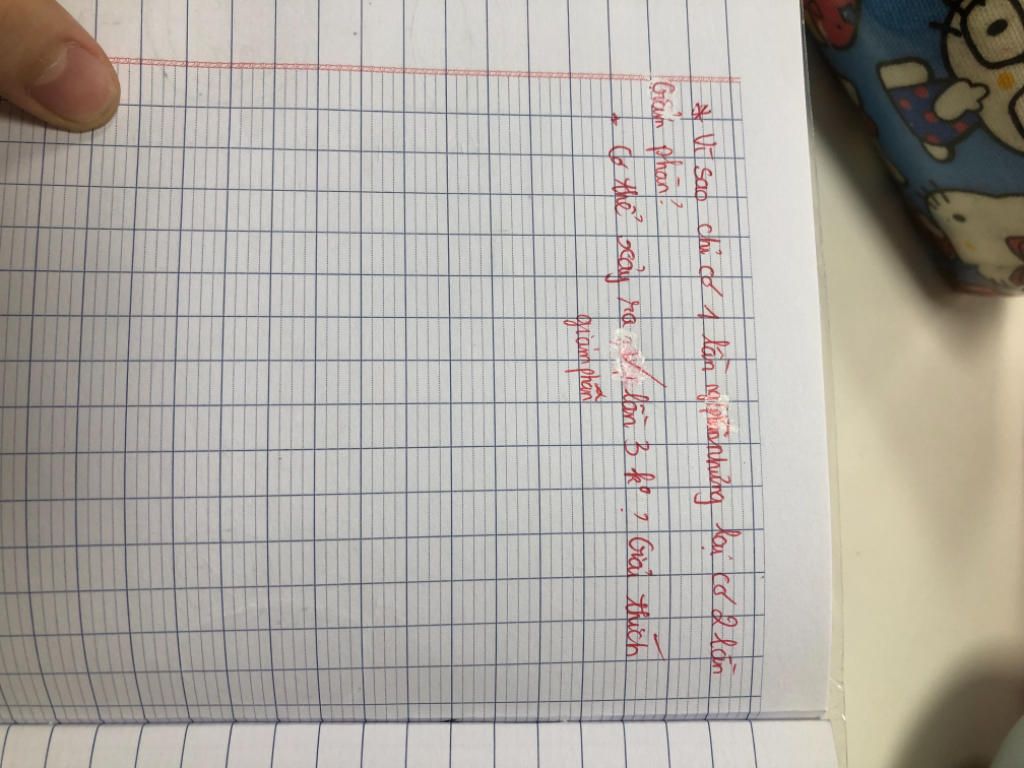 * Vì sao chỉ có 1 lần nhưng lại có 2 lần
Giảm phân?
* Có thể xảy ra lần 3 ko? Giải thích
giảm phân